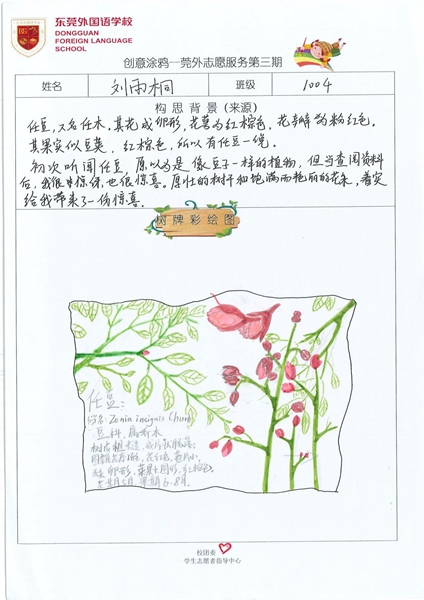 东莞外国语学校
DONGGUAN
FOREIGN LANGUAGE
SCHOOL
创意涂鸦—莞外志愿服务第三期
姓名 刘雨桐 班级 1004
构思背景(来源)
任豆,又名任木。其花成卵形,花萼为红棕色。花瓣为粉红色。
其果实似豆荚,红棕色,所以有任豆一统。
初次听闻任豆,原以为是像豆子一样的植物,但当查阅资料
后,我很惊讶,也很惊喜。原壮的树杆和饱满而艳丽的花朵,着实
给我带来了一份惊喜.
树牌彩绘图
任豆:
学名:Zenia insignis Chun
豆科,属乔木
卵形,
6-8月.
校团委
学生志愿者指导中心